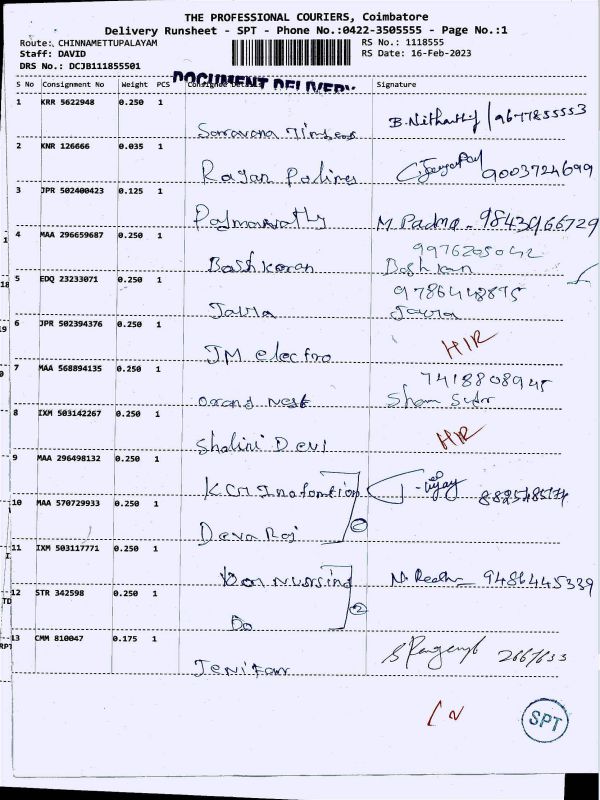 THE PROFESSIONAL COURIERS, Coimbatore
Delivery Runsheet - SPT - Phone No.:0422-3505555 - Page No.:1
Route: CHINNAMETTUPALAYAM RS No.: 1118555
Staff: DAVID RS Date: 16-Feb-2023
DRS No.: DCJB111855501
DOCUMENT DELIVERY
S No Consignment No Weight PCS Consignee Details Signature
1 KRR 5622948 0.250 1
Saravana Timbers B. Nithathy / 9677855553
2 KNR 126666 0.035 1
Rajan Polimes 9003724699
3 JPR 502400423 0.125 1
Padmavathy M. Padma - 9843966729
4 MAA 296659687 0.250 1 9976205042
Bashkaran Bashkaran
5 EDQ 23233071 0.250 1 9786448895
Jawra Jawra
6 JPR 502394376 0.250 1
JM electro HIR
7 MAA 568894135 0.250 1 7418808945
Grand Nest Sham Sudr
8 IXM 503142267 0.250 1
Shalini Devi HIR
9 MAA 296498132 0.250 1
KCM Inafontion Vijay
10 MAA 570729933 0.250 1
Deva Raj 2
11 IXM 503117771 0.250 1
Von Nursing 9486445339
12 STR 342598 0.250 1
Do 2
13 CMM 810047 0.175 1
Jenifar 2667633
SPT